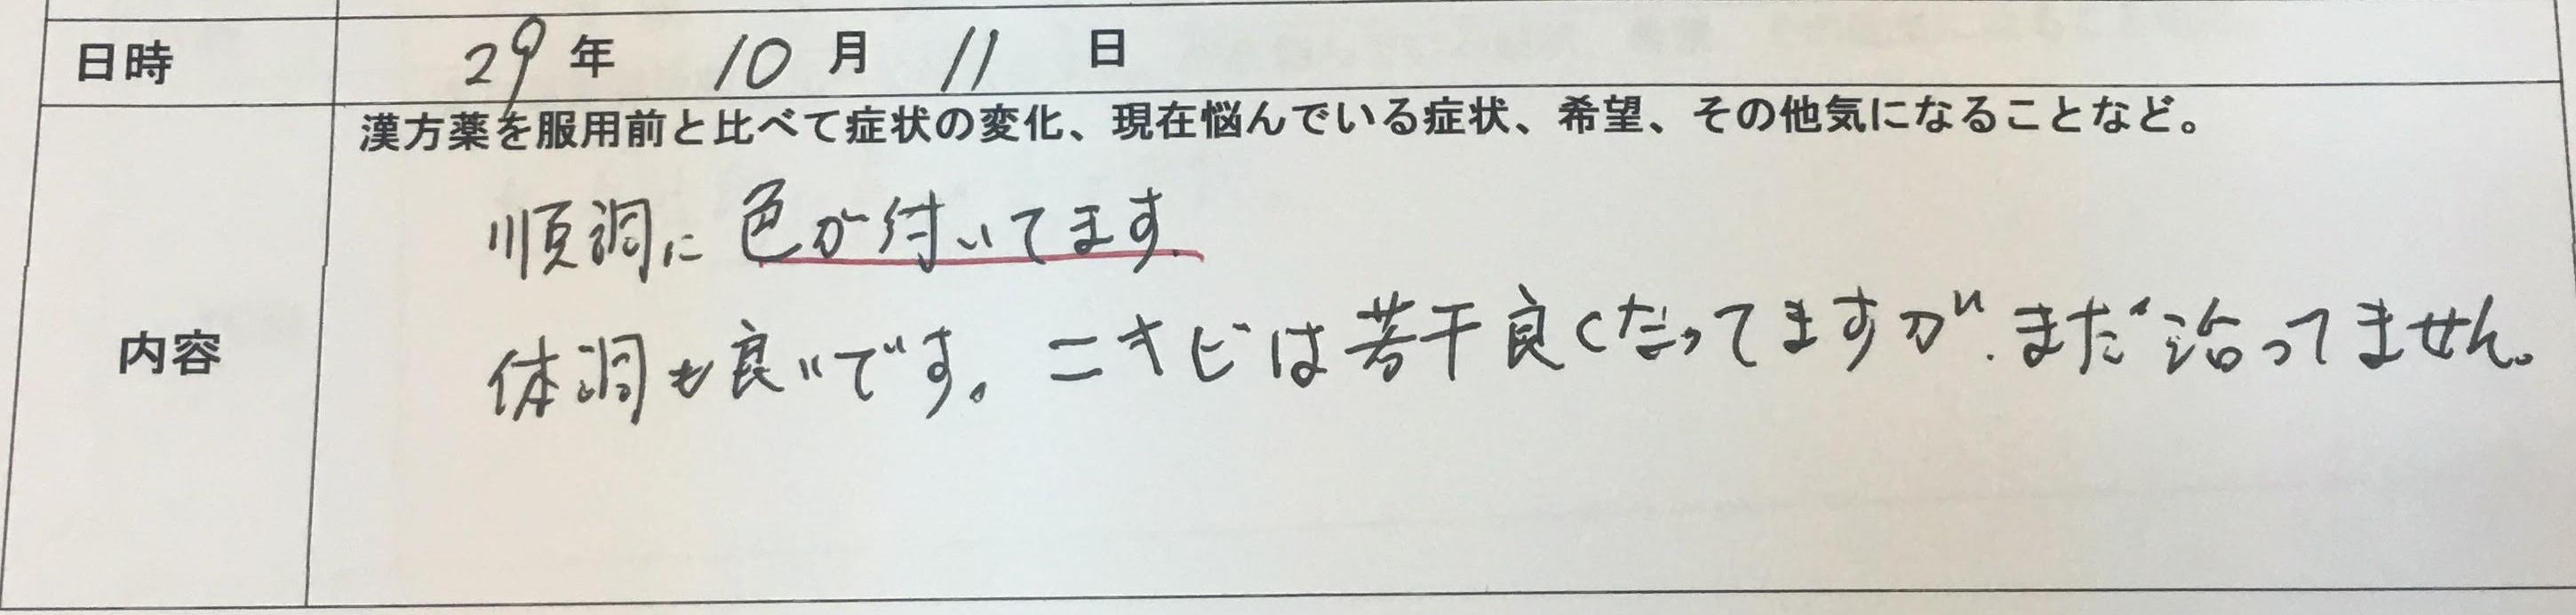 日時 29年 10月 11日
漢方薬を服用前と比べて症状の変化、現在悩んでいる症状、希望、その他気になることなど。
順調に色が付いてます.
内容
体調も良いです。ニキビは若干良くなってますが、まだ治ってません。